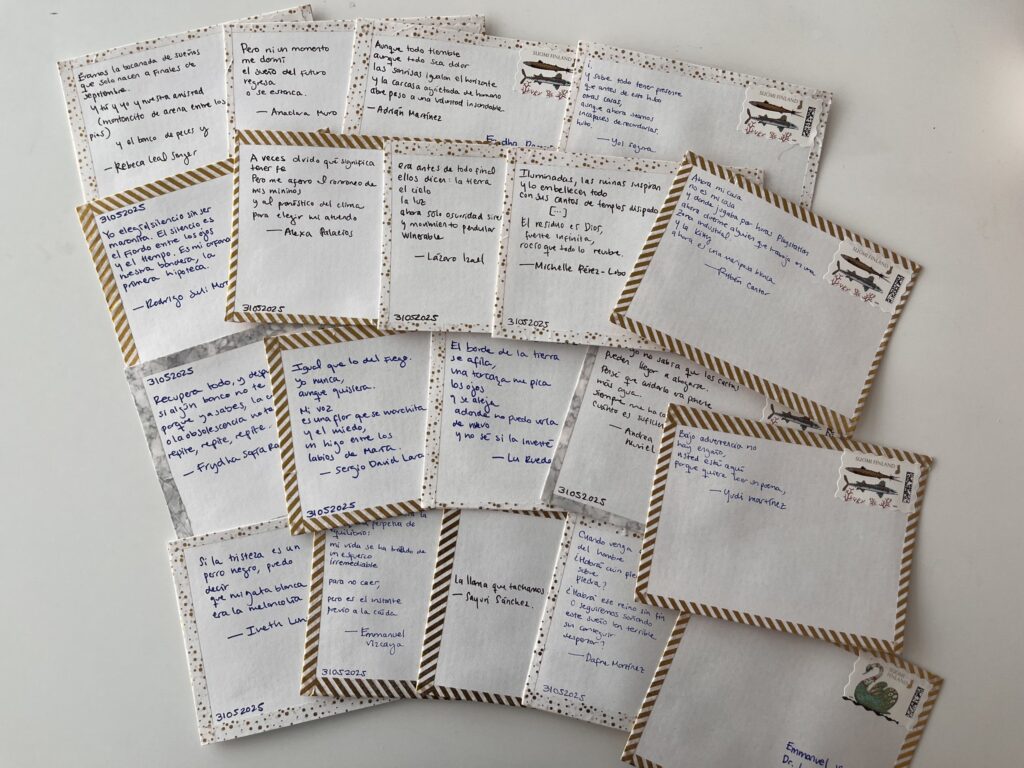 Éramos la bocanada de sueños
que solo nacen a finales de
septiembre.
y tú y yo y nuestra amistad
(montoncito de arena entre los
pies)
y el banco de peces y
— Rebeca Leal Singer
Pero ni un momento
me dormí
el sueño del futuro
regresa
o se estanca.
— Anaclara Muro
Aunque todo tiemble
aunque todo sea dolor
las sonrisas igualan el horizonte
y la carcasa agrietada de humano
abre paso a una voluntad insondable.
— Adrián Martínez
SUOMI FINLAND
y sobre todo tener presente
que antes de esta hubo
otras casas,
aunque ahora seamos
incapaces de recordarlas.
hubo.
— Yol Segura
SUOMI FINLAND
31052025
Yo elegí el silencio sin ser
maronita. El silencio es
el fiordo entre los ojos
y el tiempo. Es mi
nuestra bondosa, la
primera hipoteca.
— Rodrigo
A veces olvido qué significa
tener fe
Pero me aferro al ronroneo de
mis mininos
y al pronóstico del clima
para elegir mi atuendo
— Alexa Palacios
31052025
era antes de todo final
ellos dicen: la tierra
el cielo
la luz
ahora solo oscuridad
y movimiento pendular
vulnerable
— Lázaro Izael
Iluminadas, las ruinas suspiran
y lo embellecen todo
con sus cantos de templos disipados
[...]
El residuo es Dios,
fuente infinita,
rocío que todo lo recubre.
— Michelle Pérez-Lobo
31052025
Ahora mi casa
no es mi casa
y donde jugaba por horas Playstation
ahora duerme alguien que trabaja en una
zona industrial
y la Kitty
ahora es una mariposa blanca
— Rubén Cantor
SUOMI FINLAND
31052025
Recupera todo, y
si algún banco no te
porque ya sabes, la
o la obsolescencia no
repite, repite, repite.
Igual que lo del fuego.
yo nunca,
aunque quisiera.
Mi voz
es una flor que se marchita
y el miedo,
un higo entre los
labios de María.
— Sergio David Lara
31052025
El borde de la tierra
se afila,
una torcaza me pica
los ojos
y se aleja
adonde no puedo verla
de nuevo
y no sé si la inventé
— Lu Rueda
yo no sabía que las cactas
pueden llegar a ahogarse.
Pensé que cuidarlo era ponerle
más agua.
siempre me ha
cuánto es suficiente
— Andrea
Muriel
31052025
Bajo advertencia no
hay engaño,
usted está aquí
porque quiere leer un poema,
— Yudi Martínez
SUOMI FINLAND
Si la tristeza es un
perro negro, puedo
decir
que mi gata blanca
era la melancolía
— Iveth Luna
31052025
perpetua de
equilibrio:
mi vida se ha tratado de
un esfuerzo
irremediable
para no caer,
pero es el instante
previo a la caída.
— Emmanuel
Vizcaya
31052025
La llama que tachamos
— Sayuri Sánchez.
Cuando venga
del hombre
¿Habrá aún
sobre
piedra?
¿Habrá ese reino sin fin
O seguiremos soñando
este sueño tan terrible
sin conseguir
despertar?
— Dafne Martínez
31052025
FINLAND
Emmanuel
Dr.